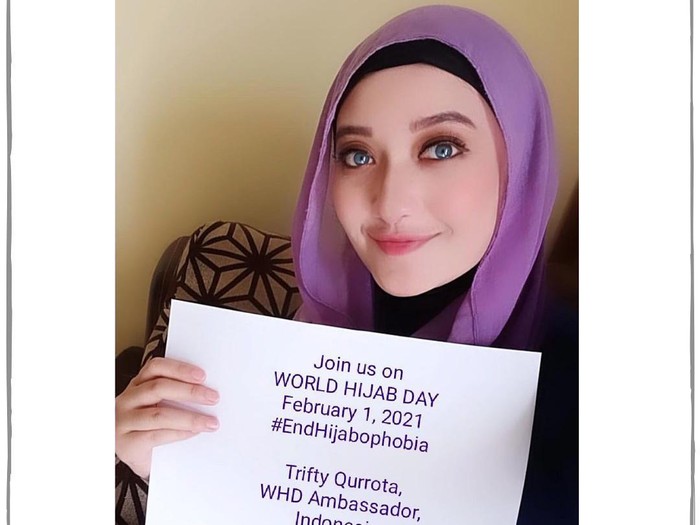 Join us on
WORLD HIJAB DAY
February 1, 2021
#EndHijabophobia
Trifty Qurrota,
WHD Ambassador,